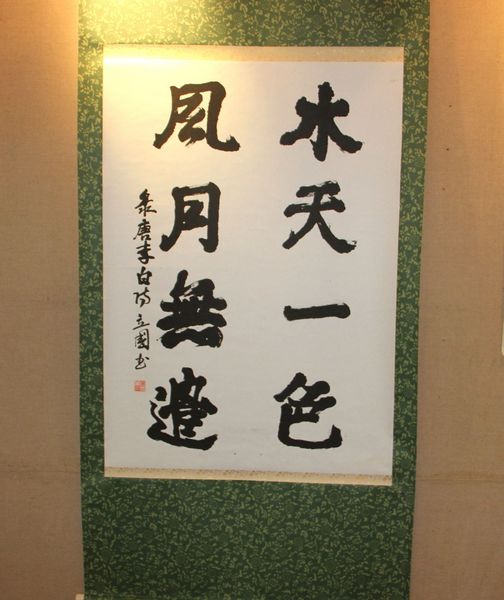 水天一色
風月無邊
錄唐李白詩 立國书